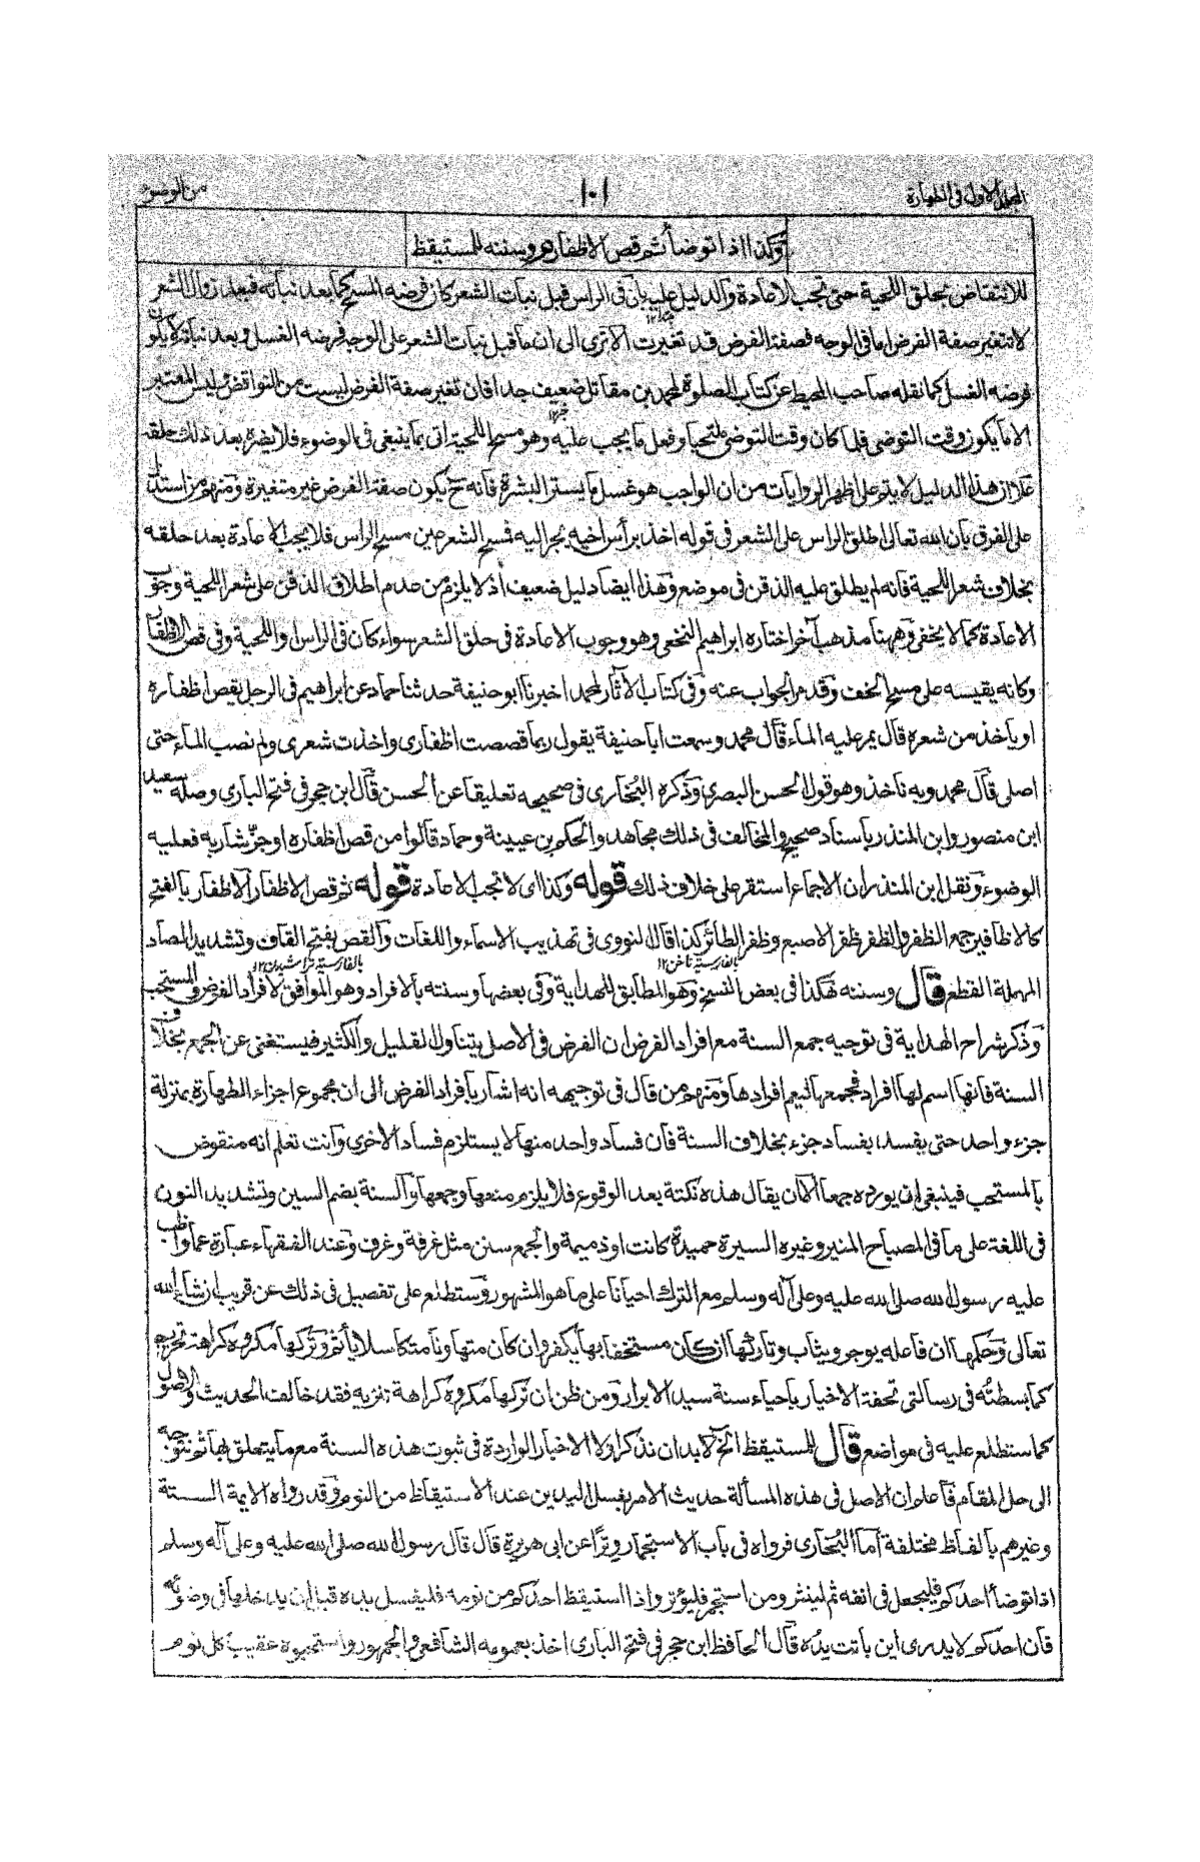 المجلد الاول فى الطهارة
١٠١
من الوضوء
وكذا اذا توضأ ثم قص الاظفار هو وسننه للمستيقظ
للانتقاض بحلق اللحية حتى تجب الاعادة والدليل عليه بان فى الراس قبل نبات الشعر كان فرضه المسح كما بعد نباته فبعد زوال الشعر
لا تتغير صفة الفرض اما فى الوجه فصفة الفرض قد تغيرت الا ترى الى ان ما قبل نبات الشعر على الوجه فرضه الغسل وبعد نباته لا يكون
فرضه الغسل كما نقله صاحب المحيط عن كتاب الصلوة لمحمد بن مقاتل ضعيف جدا فان تغير صفة الفرض ليست من النواقض وليس المعتبر
الا ما يكون وقت التوضى فلما كان وقت التوضى ملتحيا وفعل ما يجب عليه وهو مسح اللحية اتى بما ينبغى فى الوضوء فلا يضره بعد ذلك حلقه
علا ان هذا الدليل لا يتم على اظهر الروايات من ان الواجب هو غسل ما يستر البشرة فانه ح يكون صفة الفرض غير متغيرة ومنهم من استدل
على الفرق بان الله تعالى اطلق الراس على الشعر فى قوله اخذ برأس اخيه يجره اليه فمسح الشعر عين مسح الراس فلا يجب الاعادة بعد حلقه
بخلاف شعر اللحية فانه لم يطلق عليه الذقن فى موضع وهذا ايضا دليل ضعيف اذ لا يلزم من عدم اطلاق الذقن على شعر اللحية وجوب
الاعادة كما لا يخفى وههنا مذهب آخر اختاره ابراهيم النخعى وهو وجوب الاعادة فى حلق الشعر سواء كان فى الراس او اللحية وفى قص الاظفار
وكانه يقيسه على مسح الخف وقد مر الجواب عنه وفى كتاب الآثار لمحمد اخبرنا ابو حنيفة حدثنا حماد عن ابراهيم فى الرجل يقص اظفاره
او يأخذ من شعره قال يمر عليه الماء قال محمد وسمعت ابا حنيفة يقول ربما قصصت اظفارى واخذت شعرى ولم نصب الماء حتى
اصلى قال محمد وبه ناخذ وهو قول الحسن البصرى وذكره البخارى فى صحيحه تعليقا عن الحسن قال ابن حجر فى فتح البارى وصله سعيد
ابن منصور وابن المنذر باسناد صحيح والمخالف فى ذلك مجاهد والحكم بن عيينة وحماد قالوا من قص اظفاره او جز شاربه فعليه
الوضوء ونقل ابن المنذر ان الاجماع استقر على خلاف ذلك قوله وكذا اى لا تجب الاعادة قوله ثم قص الاظفار الاظفار بالفتح
كالاظافير جمع الظفر والظفر ظفر الاصبع وظفر الطائر كذا قال النووى فى تهذيب الاسماء واللغات والقص بفتح القاف وتشديد الصاد
بالفارسية ناخن ١٢ بالفارسية تراشيدن ١٢
المهملة القطع قال وسننه هكذا فى بعض النسخ وهو المطابق للهداية وفى بعضها وسنته بالافراد وهو الموافق لافراد الفرض والمستحب
وذكر شراح الهداية فى توجيه جمع السنة مع افراد الفرض ان الفرض فى الاصل يتناول القليل والكثير فيستغنى عن الجمع بخلاف
السنة فانها اسم لها افراد فجمعها ليعم افرادها ومنهم من قال فى توجيهه انه اشار بافراد الفرض الى ان مجموع اجزاء الطهارة بمنزلة
جزء واحد حتى يفسد بفساد جزء بخلاف السنة فان فساد واحد منها لا يستلزم فساد الاخرى وانت تعلم انه منقوض
بالمستحب فينبغى ان يورده جمعا الا ان يقال هذه نكتة بعد الوقوع فلا يلزم منعها وجمعها والسنة بضم السين وتشديد النون
فى اللغة على ما فى المصباح المنير وغيره السيرة حميدة كانت او ذميمة والجمع سنن مثل غرفة وغرف وعند الفقهاء عبارة عما واظب
عليه رسول الله صلى الله عليه وعلى آله وسلم مع الترك احيانا على ما هو المشهور وستطلع على تفصيل فى ذلك عن قريب ان شاء الله
تعالى وحكمها ان فاعله يوجر ويثاب وتاركها ان كان مستخفا بها يكفر وان كان متهاونا متكاسلا يأثم وتركها مكروه كراهة تحريم
كما بسطته فى رسالتى تحفة الاخيار باحياء سنة سيد الابرار ومن ظن ان تركها مكروه كراهة تنزيه فقد خالف الحديث والاصول
كما ستطلع عليه فى مواضع قال للمستيقظ الخ لا بد ان نذكر اولا الاخبار الواردة فى ثبوت هذه السنة مع ما يتعلق بها ثم نتوجه
الى حل المقام فاعلم ان الاصل فى هذه المسألة حديث الامر بغسل اليدين عند الاستيقاظ من النوم وقد رواه الايمة الستة
وغيرهم بالفاظ مختلفة اما البخارى فرواه فى باب الاستجمار وترا عن ابى هريرة قال قال رسول الله صلى الله عليه وعلى آله وسلم
اذا توضأ احدكم فليجعل فى انفه ثم لينثر ومن استجمر فليوتر واذا استيقظ احدكم من نومه فليغسل يده قبل ان يدخلها فى وضوئه
فان احدكم لا يدرى اين باتت يده قال الحافظ ابن حجر فى فتح البارى اخذ بعمومه الشافعى والجمهور واستحبوه عقيب كل نوم